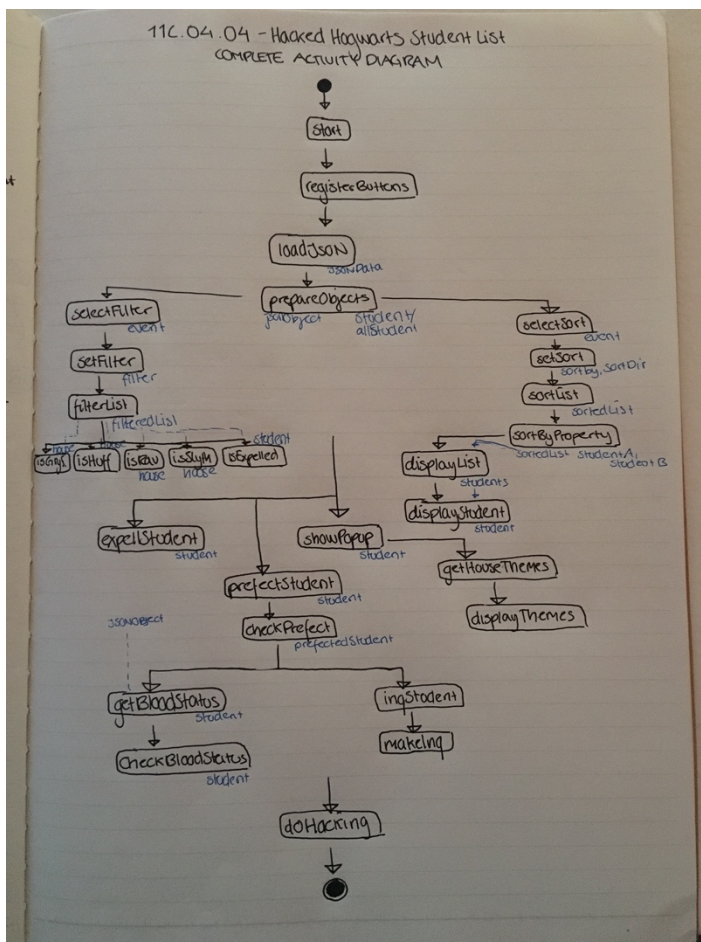 11C.04.04 - Hacked Hogwarts Student List
COMPLETE ACTIVITY DIAGRAM
start
registerButtons
loadJSON
JSONData
prepareObjects
jsonObject
student/
allStudent
selectFilter
event
setFilter
filter
filterList
filteredList
house
house
student
isGryf
isHuff
isRav
isSlyM
isExpelled
house
house
selectSort
event
setSort
sortby, sortDir
sortList
sortedList
sortByProperty
sortedList
studentA,
studentB
displayList
students
displayStudent
student
expellStudent
student
showPopup
student
getHouseThemes
displayThemes
prefectStudent
student
checkPrefect
prefectedStudent
JSONObject
getBloodStatus
student
checkBloodStatus
student
inqStudent
makeInq
doHacking